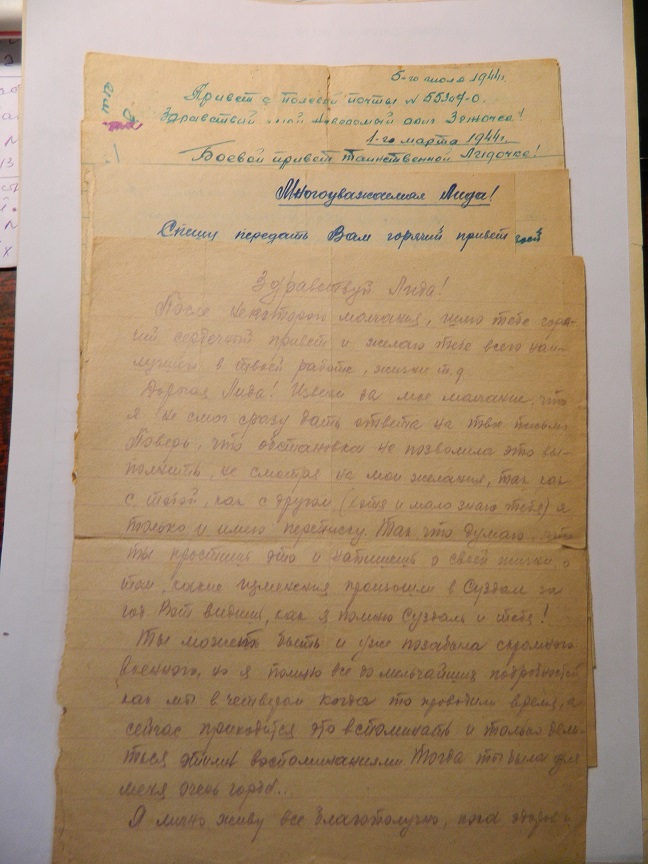 5-го июля 1944г.
Привет с полевой почты N 55307-0.
Здравствуй мой
1-го марта 1944г.
Боевой привет таинственной Лидочке!
Многоуважаемая Лида!
Спешу передать Вам горячий привет
Здравствуй Лида!
После некоторого молчания, шлю тебе горя-
чий сердечный привет и желаю тебе всего наи-
лучшего в твоей работе, жизни и т.д
Дорогая Лида! Извини за мое молчание, что
я не смог сразу дать ответа на твои письма
Поверь, что обстановка не позволила это вы-
полнить, не смотря на мои желания, так как
с тобой, как с другом (хотя и мало знаю тебя) я
только и имею переписку. Так что думаю, что
ты простишь это и напишешь о своей жизни, о
том, какие изменения произошли в Суздале за
год. Вот видишь, как я помню Суздаль и тебя!
Ты может быть и уже позабыла скромного
военного, но я помню все до мельчайших подробностей
как мы в четвером когда то проводили время, а
сейчас приходится это вспоминать и только
ться этими воспоминаниями. Тогда ты была для
меня очень горда...
Я лично живу все благополучно, пока здоров и